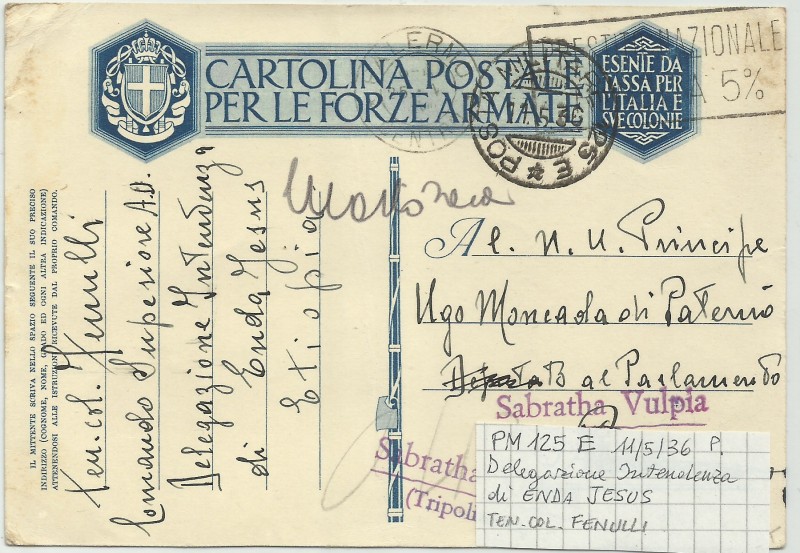 CARTOLINA POSTALE
PER LE FORZE ARMATE
ESENTE DA
TASSA PER
L'ITALIA E
SVE COLONIE
NAZIONALE
5%
POSTA 125 E
11.5.36
IL MITTENTE SCRIVA NELLO SPAZIO SEGUENTE IL SUO PRECISO
INDIRIZZO (COGNOME, NOME, GRADO ED OGNI ALTRA INDICAZIONE)
ATTENENDOSI ALLE ISTRUZIONI RICEVUTE DAL PROPRIO COMANDO.
Ten. col. Fenulli
Comando Superiore A.O.
Delegazione Intendenza
di Enda Jesus
Etiopia
Al. N. U. Principe
Ugo Moncada di Paternò
al Parlamento
Sabratha Vulpia
Sabratha
(Tripoli
PM 125 E 11/5/36 P.
Delegazione Intendenza
di ENDA JESUS
TEN. COL. FENULLI